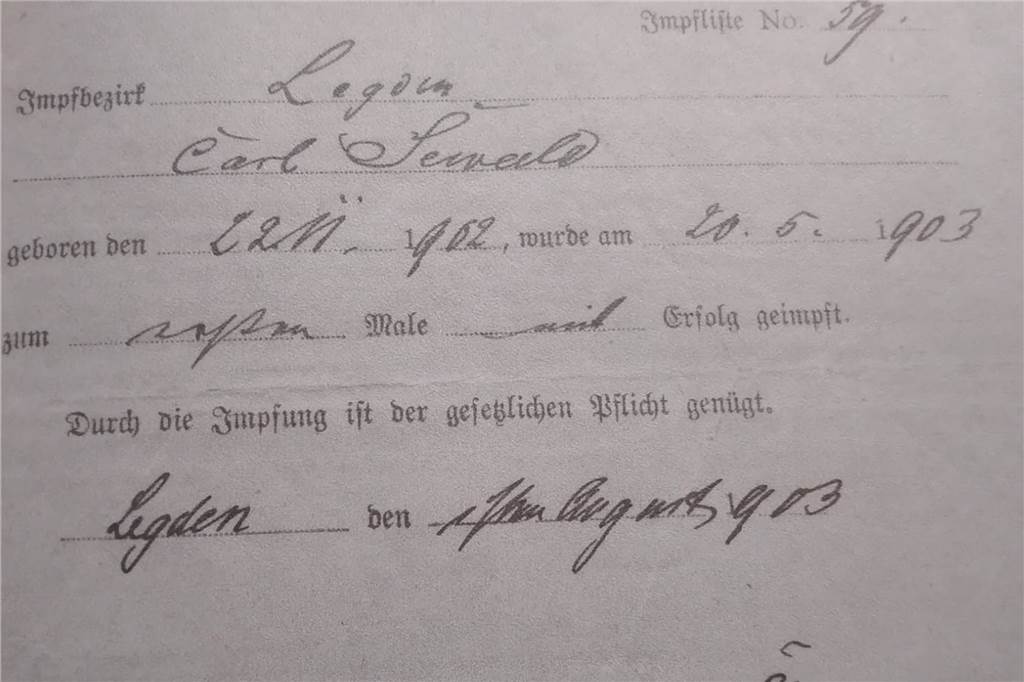 Impfliste No. 59.
Impfbezirk Legden
Carl Sewald
geboren den 22 11. 1902, wurde am 20. 5. 1903
zum ersten Male mit Erfolg geimpft.
Durch die Impfung ist der gesetzlichen Pflicht genügt.
Legden den 1ten August 1903